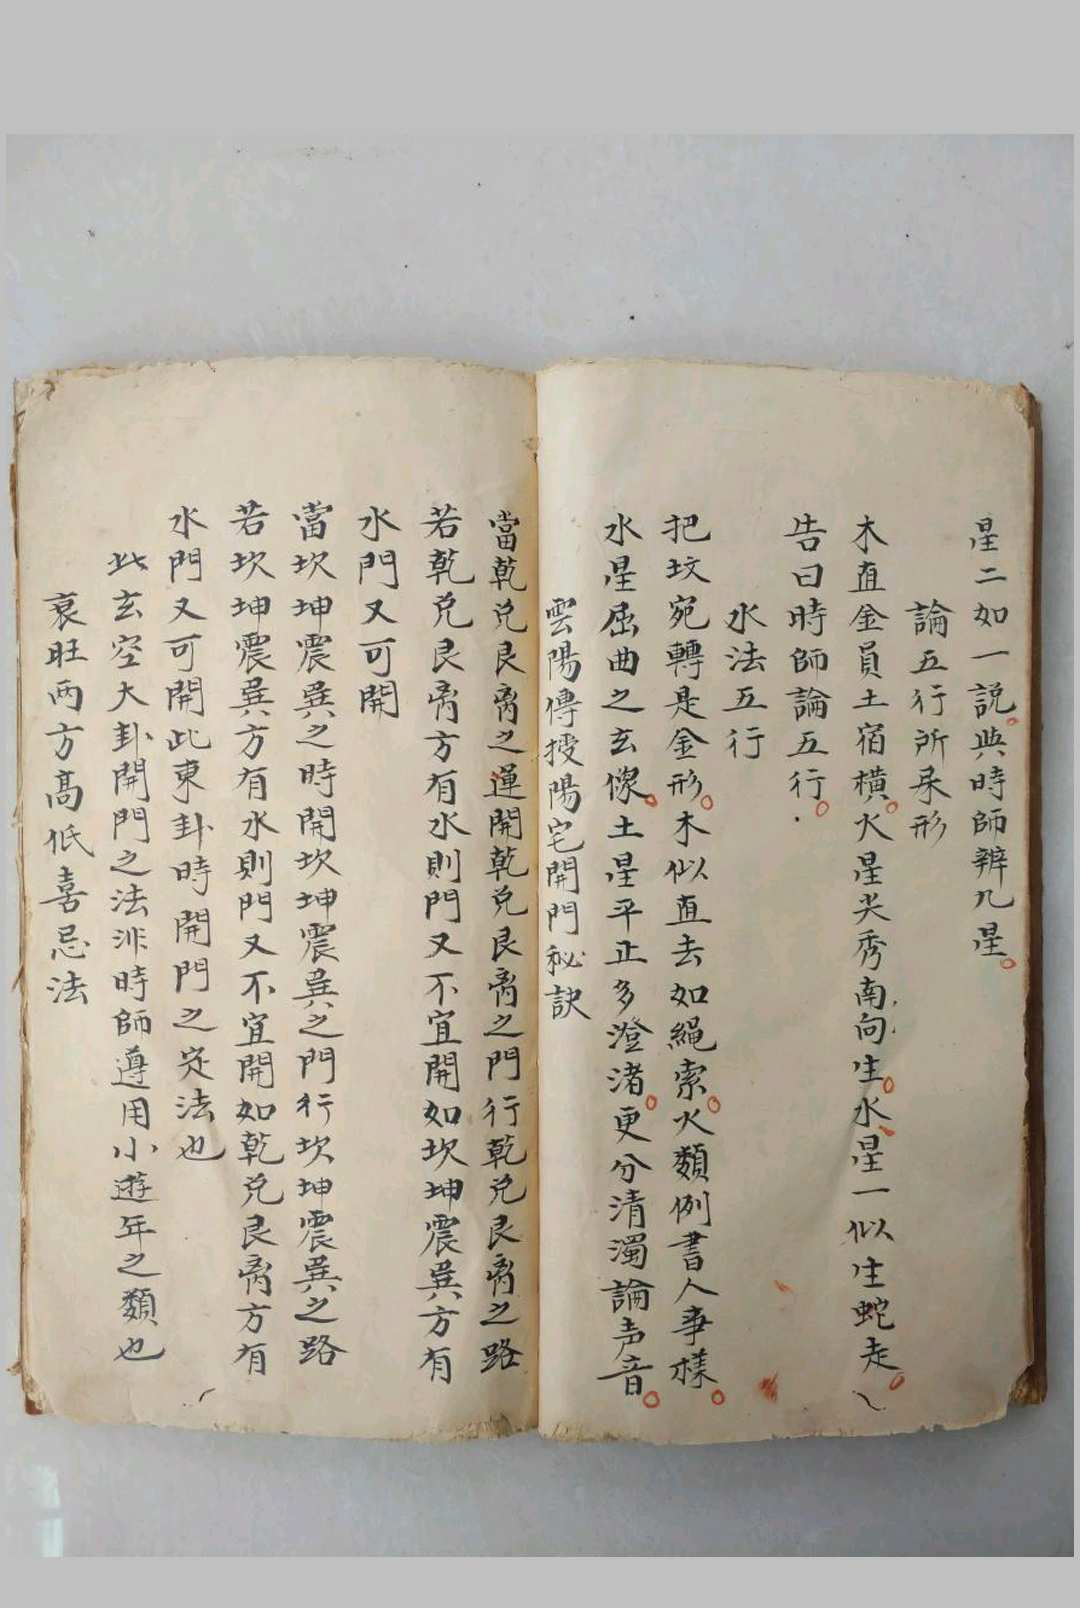 星二如一說與時師辨九星
論五行所呆形
木直金員土宿橫火星尖秀南向生水星一似生蛇走
告曰時師論五行
水法五行
把坟宛轉是金形木似直去如繩索火類例書人事樣
水星屈曲之玄像土星平正多澄渚更分清濁論声音
雲陽傳授陽宅開門秘訣
當乾兌艮离之運開乾兌艮离之門行乾兌艮离之路
若乾兌艮离方有水則門又不宜開如坎坤震巽方有
水門又可開
當坎坤震巽之時開坎坤震巽之門行坎坤震巽之路
若坎坤震巽方有水則門又不宜開如乾兌艮离方有
水門又可開此東卦時開門之定法也
此玄空大卦開門之法非時師遵用小遊年之類也
衰旺兩方高低喜忌法